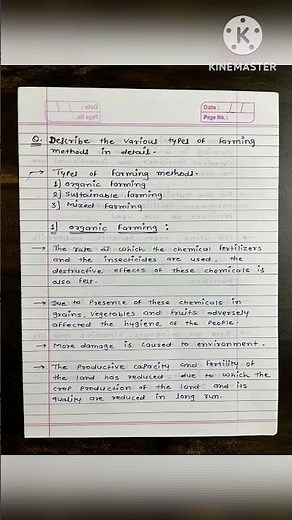 KINEMASTER
Date :
Page No. :
Q. Describe the various types of farming
methods in detail.
→ Types of farming methods.
1) Organic farming
2) Sustainable farming
3) Mixed farming
1) Organic Farming :
→ The rate at which the chemical fertilizers
and the insecticides are used, the
destructive effects of these chemicals is
also felt.
→ Due to Presence of these chemicals in
grains, vegetables and fruits adversely
affected the hygiene of the People.
→ More damage is caused to environment.
→ The Productive capacity and fertility of
the land has reduced, due to which the
crop production of the land and its
quality are reduced in long run.